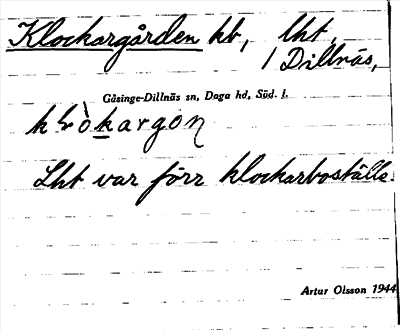 Klockargården hb, lht,
1 Dillnäs,
Gåsinge-Dillnäs sn, Daga hd, Söd. l.
Lht var förr klockarboställe.
Artur Olsson 1944